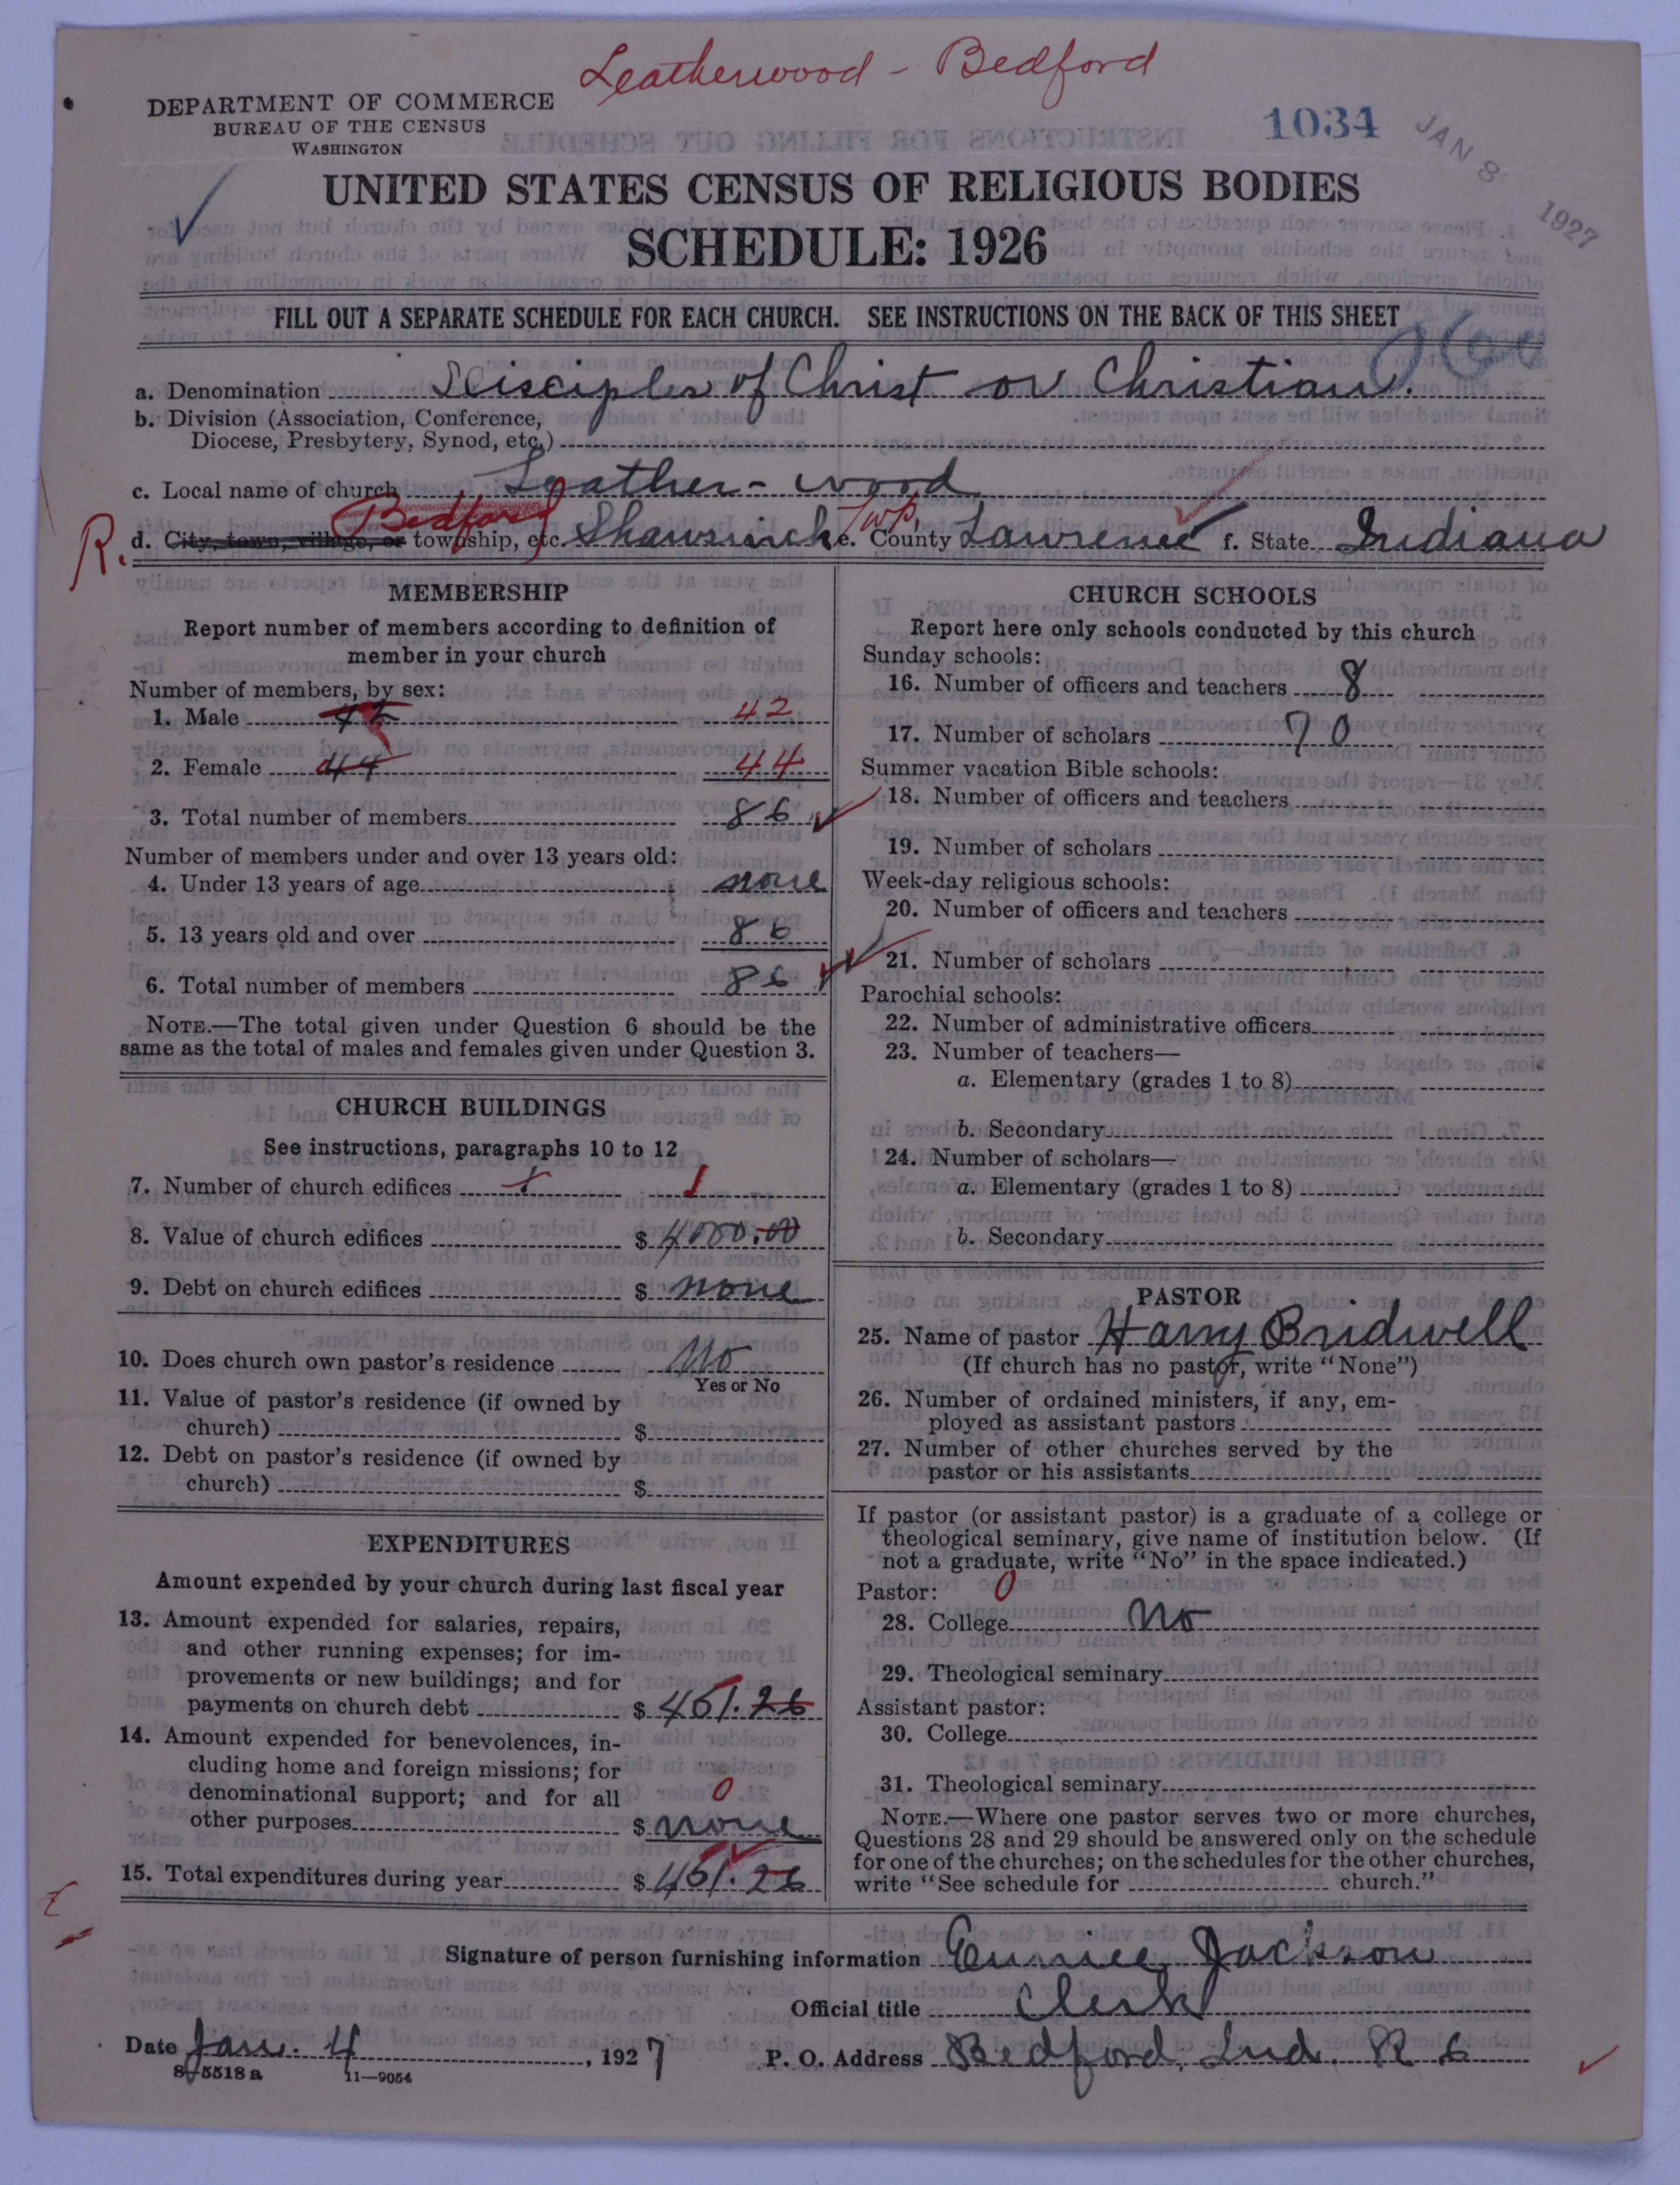 Leatherwood - Bedford
DEPARTMENT OF COMMERCE
BUREAU OF THE CENSUS
WASHINGTON
1034
JAN 8 1927
UNITED STATES CENSUS OF RELIGIOUS BODIES
SCHEDULE: 1926
FILL OUT A SEPARATE SCHEDULE FOR EACH CHURCH. SEE INSTRUCTIONS ON THE BACK OF THIS SHEET
a. Denomination Disciples of Christ or Christian.
b. Division (Association, Conference,
Diocese, Presbytery, Synod, etc.)
c. Local name of church Leather-wood
Bedford Twp.
R. d. City, town, village, or township, etc. Shawswick e. County Lawrence f. State Indiana
MEMBERSHIP
Report number of members according to definition of
member in your church
Number of members, by sex:
1. Male 42 42
2. Female 44 44
3. Total number of members 86
Number of members under and over 13 years old:
4. Under 13 years of age none
5. 13 years old and over 86
6. Total number of members 86
NOTE.—The total given under Question 6 should be the
same as the total of males and females given under Question 3.
CHURCH BUILDINGS
See instructions, paragraphs 10 to 12
7. Number of church edifices 1 1
8. Value of church edifices $ 4000.00
9. Debt on church edifices $ none
10. Does church own pastor's residence No
Yes or No
11. Value of pastor's residence (if owned by
church) $
12. Debt on pastor's residence (if owned by
church) $
EXPENDITURES
Amount expended by your church during last fiscal year
13. Amount expended for salaries, repairs,
and other running expenses; for im-
provements or new buildings; and for
payments on church debt $ 461.26
14. Amount expended for benevolences, in-
cluding home and foreign missions; for
denominational support; and for all 0
other purposes $ none
15. Total expenditures during year $ 461.26
CHURCH SCHOOLS
Report here only schools conducted by this church
Sunday schools:
16. Number of officers and teachers 8
17. Number of scholars 70
Summer vacation Bible schools:
18. Number of officers and teachers
19. Number of scholars
Week-day religious schools:
20. Number of officers and teachers
21. Number of scholars
Parochial schools:
22. Number of administrative officers
23. Number of teachers—
a. Elementary (grades 1 to 8)
b. Secondary
24. Number of scholars—
a. Elementary (grades 1 to 8)
b. Secondary
PASTOR
25. Name of pastor Harry Bridwell
(If church has no pastor, write "None")
26. Number of ordained ministers, if any, em-
ployed as assistant pastors
27. Number of other churches served by the
pastor or his assistants
If pastor (or assistant pastor) is a graduate of a college or
theological seminary, give name of institution below. (If
not a graduate, write "No" in the space indicated.)
Pastor: 0
28. College No
29. Theological seminary
Assistant pastor:
30. College
31. Theological seminary
NOTE.—Where one pastor serves two or more churches,
Questions 28 and 29 should be answered only on the schedule
for one of the churches; on the schedules for the other churches,
write "See schedule for church."
Signature of person furnishing information Eunice Jackson
Official title Clerk
Date Jan. 4, 1927 P. O. Address Bedford, Ind. R 6
8-5518 a 11—9054